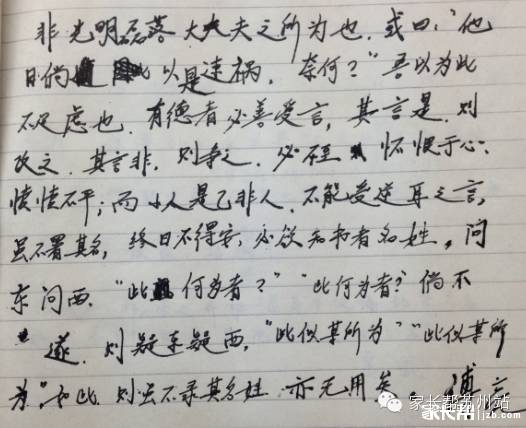 非光明磊落大丈夫之所为也。或曰："他
日倘 以是速祸，奈何？"吾以为此
不足虑也。有德者必善受言，其言是，则
改之，其言非，则争之，必不 怀恨于心，
愤愤不平；而小人是己非人，不能受逆耳之言，
虽不署其名，终日不得安，必欲知书者名姓。问
东问西，"此何为者？""此何为者？"倘不
遂，则疑东疑西，"此似某所为""此似某所
为"，如此，则虽不录其名姓，亦无用矣。
家长帮苏州站
家长帮 jzb.com